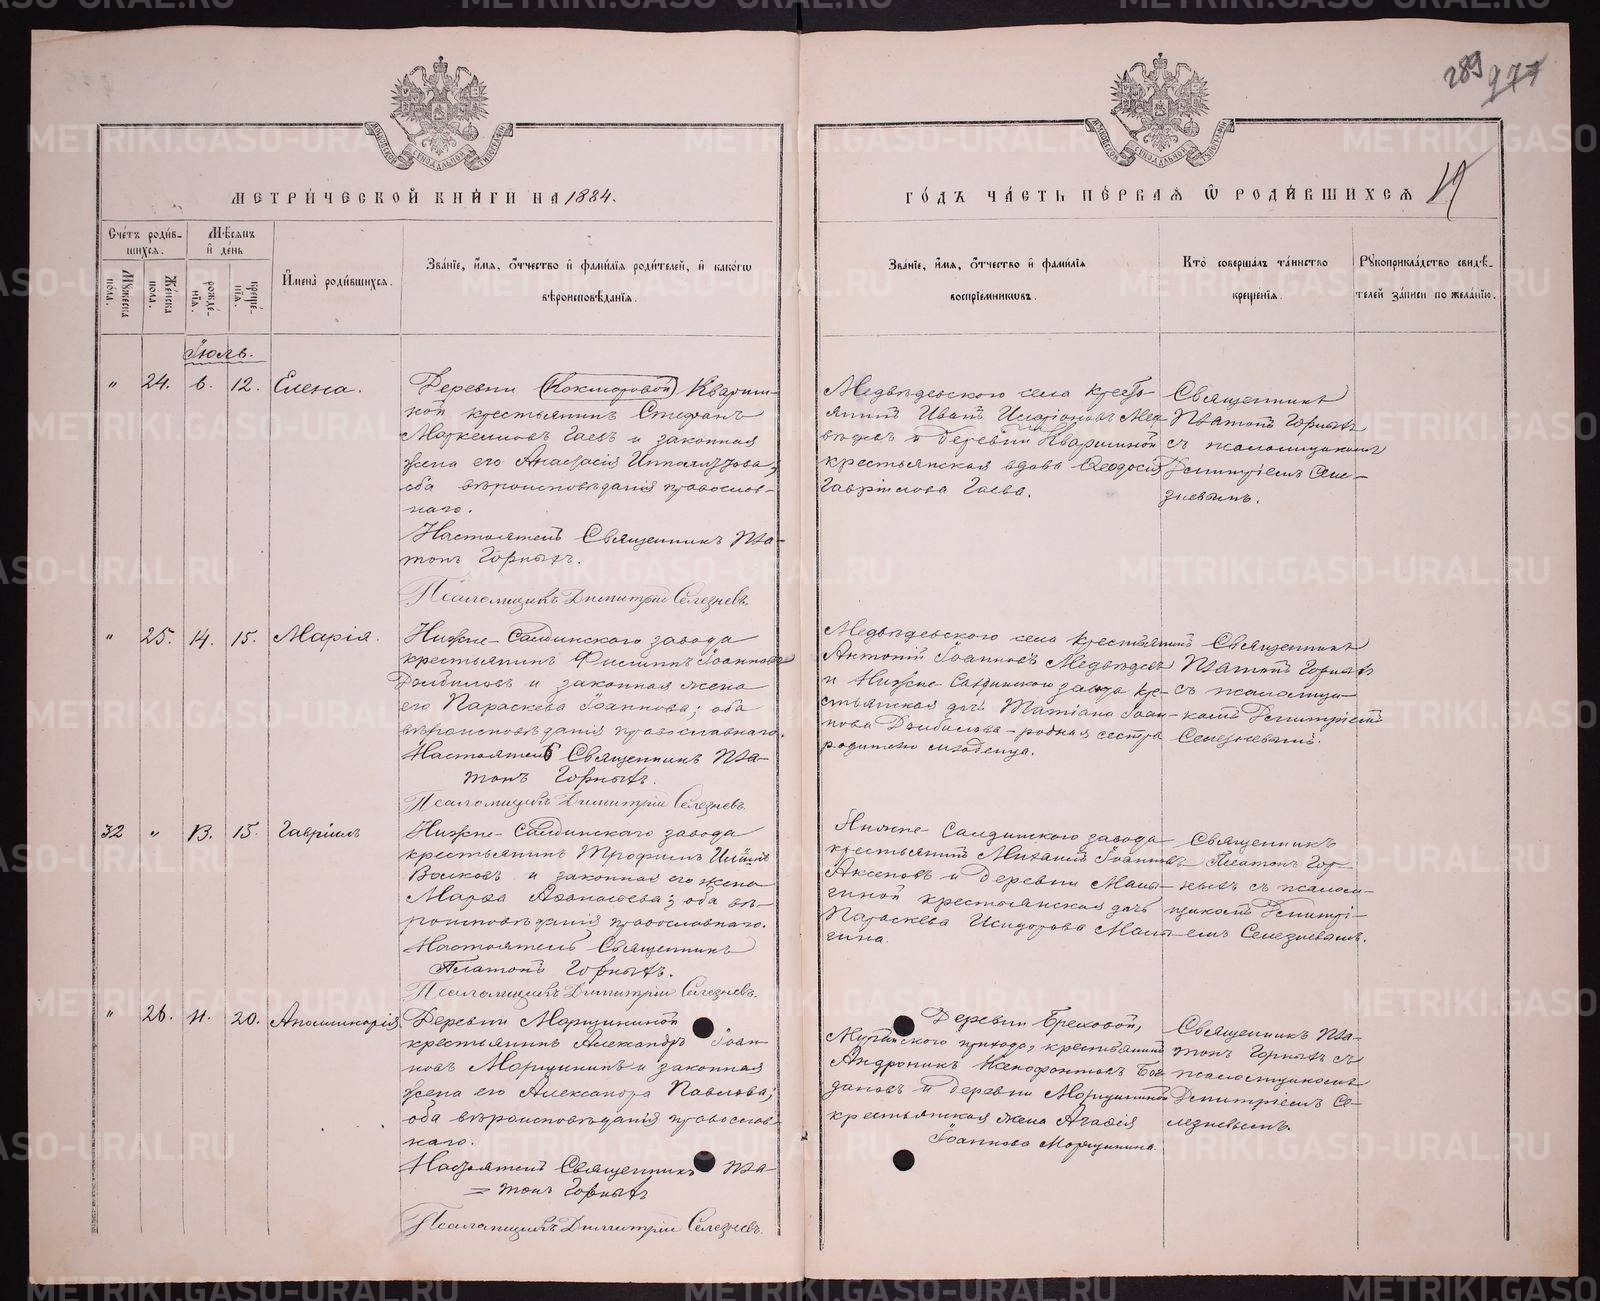 289 977
МЕТРИ́ЧЕСКОЙ КНИ́ГИ НА 1884.
ГО́ДЪ ЧА́СТЬ ПЕ́РВАЯ Ѽ РОДИ́ВШИХСЯ
Сче́тъ роди́в-
шихся.
Мꙋ́жеска пола.
Же́нска пола.
Мѣ́сяцъ
и̑ де́нь
рожде́нїя.
креще́нїя.
И̑мена̀ роди́вшихся.
Зва́нїе, и́мя, о́тчество и̑ фами́лїя роди́телей, и̑ како́гѡ
вѣроисповѣ́данїя.
Зва́нїе, и́мя, о́тчество и̑ фами́лїя
воспрїе́мникѡвъ.
Кто̀ соверша́лъ та́инство
креще́нїя.
Рꙋкоприкла́дство свидѣ́-
телей за́писи по жела́нїю.
Іюль.
" 24. 6. 12. Елена.
Деревни (Кокшаровой) Кварши-
ной крестьянинъ Стефанъ
Маркелловъ Гаевъ и законная
жена его Анастасія Ипполитова,
оба вѣроисповѣданія православ-
наго.
Настоятель Священникъ Пла-
тонъ Горныхъ.
Псаломщикъ Димитрій Селезневъ.
Медвѣдевскаго села кресть-
янинъ Иванъ Иларіоновъ Мед-
вѣдевъ и деревни Кваршиной
крестьянская вдова Ѳеодосія
Гавріилова Гаева.
Священникъ
Платонъ Горныхъ
съ псаломщикомъ
Димитріемъ Селе-
зневымъ.
" 25. 14. 15. Марія.
Нижне-Салдинскаго завода
крестьянинъ Филиппъ Іоанновъ
и законная жена
его Параскева Іоаннова; оба
вѣроисповѣданія православнаго.
Настоятель Священникъ Пла-
тонъ Горныхъ.
Псаломщикъ Димитрій Селезневъ.
Медвѣдевскаго села крестьянинъ
Антоній Іоанновъ Медвѣдевъ
и Нижне-Салдинскаго завода кре-
стьянская дочь Татіана Іоан-
нова - родная сестра
родителю младенца.
Священникъ
Платонъ Горныхъ
съ псаломщи-
комъ Димитріемъ
Селезневымъ.
32 " 13. 15. Гавріилъ
Нижне-Салдинскаго завода
крестьянинъ Трофимъ Ильинъ
Волковъ и законная его жена
Марѳа Аѳанасьева; оба вѣ-
роисповѣданія православнаго.
Настоятель Священникъ
Платонъ Горныхъ.
Псаломщикъ Димитрій Селезневъ.
Нижне-Салдинскаго завода
крестьянинъ Михаилъ Іоанновъ
Аксеновъ и деревни Малы-
гиной крестьянская дочь
Параскева Исидорова Малы-
гина.
Священникъ
Платонъ Гор-
ныхъ съ псалом-
щикомъ Димитрі-
емъ Селезневымъ.
" 26. 11. 20. Аполлинарія
Деревни Морщининой
крестьянинъ Александръ Іоан-
новъ Морщининъ и законная
жена его Александра Павлова;
оба вѣроисповѣданія православ-
наго.
Настоятель Священникъ Пла-
тонъ Горныхъ
Псаломщикъ Димитрій Селезневъ.
Деревни Бреховой,
Мугайскаго прихода, крестьянинъ
Андроникъ Ксенофонтовъ Бог-
дановъ и деревни Морщининой
крестьянская жена Агаѳія
Іоаннова Морщинина.
Священникъ Пла-
тонъ Горныхъ съ
псаломщикомъ
Димитріемъ Се-
лезневымъ.